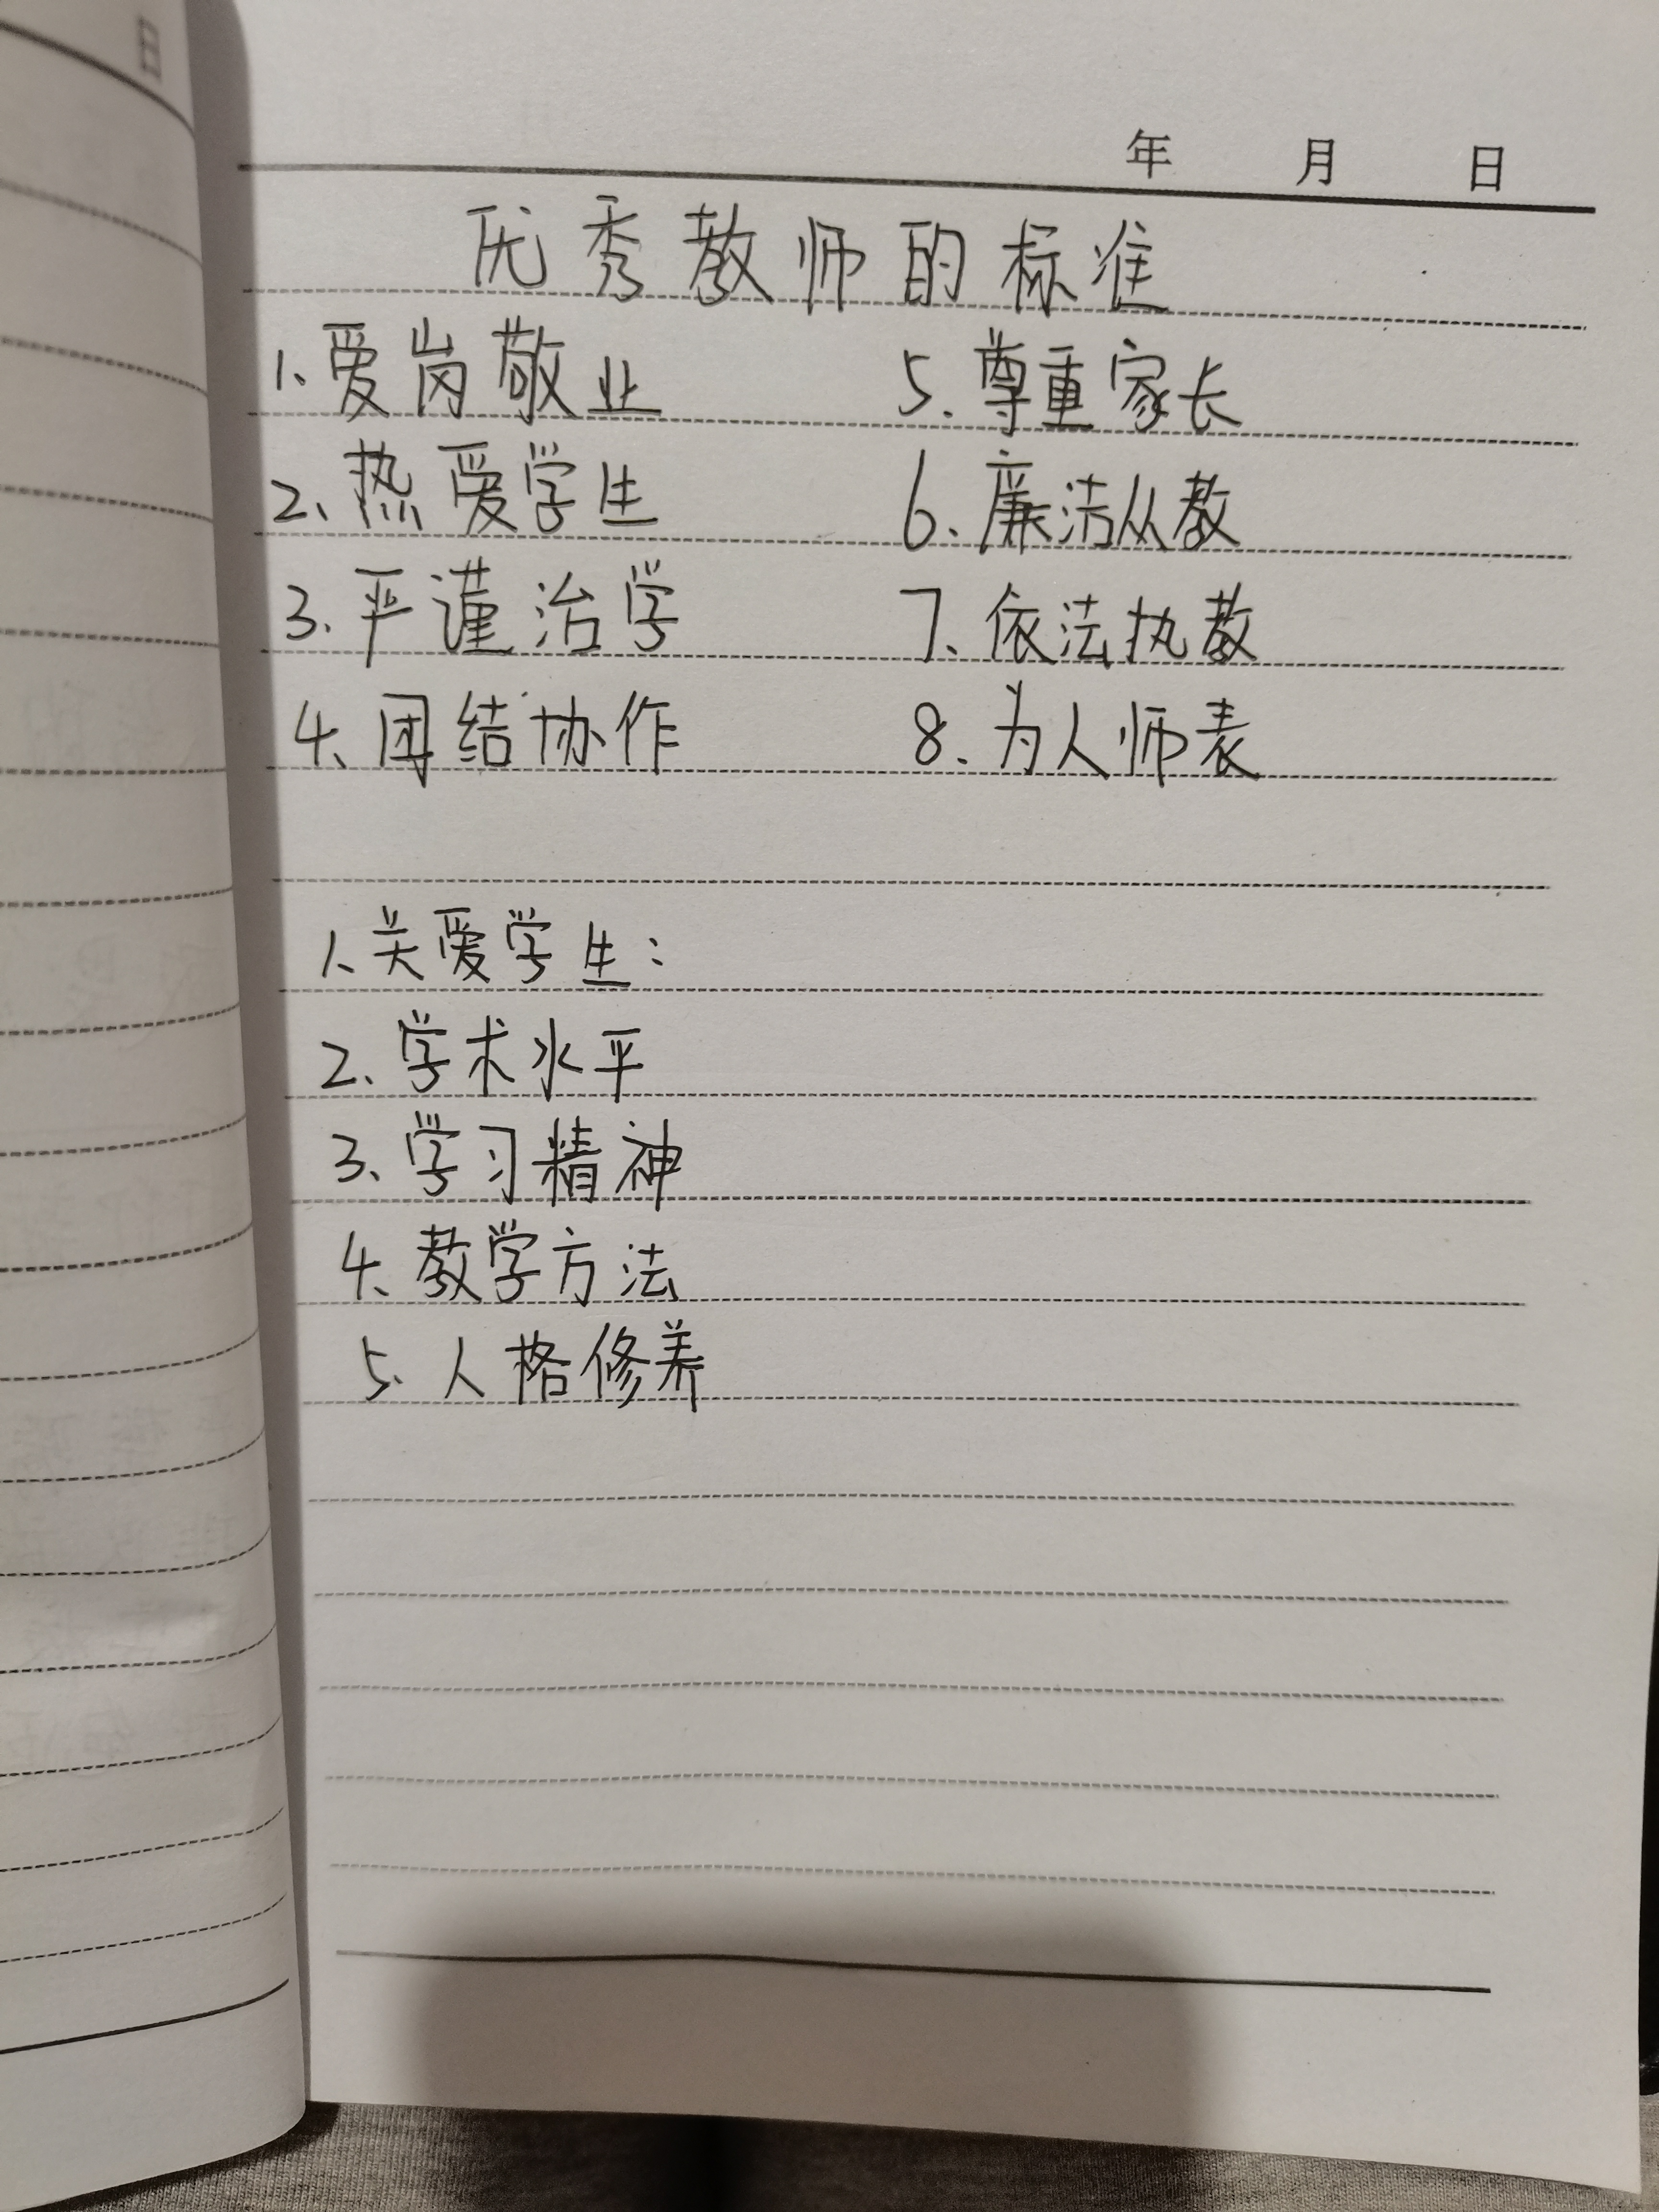 日
年 月 日
优秀教师的标准
1、爱岗敬业 5、尊重家长
2、热爱学生 6、廉洁从教
3、严谨治学 7、依法执教
4、团结协作 8、为人师表
1、关爱学生：
2、学术水平
3、学习精神
4、教学方法
5、人格修养